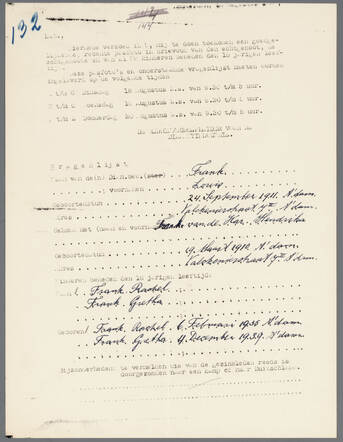 132
L.S.,
Hiermede verzoek ik U, mij te doen toekomen een goedge-
recente pasfoto in drievoud van den echtgenoot, de
echtgenoote en van al Uw kinderen beneden den 18 jarigen leef-
tijd.
Deze pasfoto's en onderstaande vragenlijst moeten worden
ingeleverd op de volgende tijden:
Dinsdag 18 Augustus a.s. van 9.30 tot 5 uur.
Woensdag 19 Augustus a.s. van 9.30 tot 5 uur.
Donderdag 20 Augustus a.s. van 9.30 tot 5 uur.
Vragenlijst
Naam van den/de Dienstd. Frank
voornamen Louis
Geboortedatum 24 September 1911. A'dam.
Adres Valckenierstraat
Gehuwd met (naam en voornamen) Frank v.d. Har. Hendrika
Geboortedatum 19 Maart 1912 A'dam.
Adres Valckenierstraat A'dam.
Kinderen beneden den 18 jarigen leeftijd:
Naam Frank Rachel
Frank Gretha
Geboren/ Frank Rachel 6 Februari 1935 A'dam
Frank Gretha 4 December 1939. A'dam.
Bijzonderheden te vermelden als van de gezinsleden reeds is
doorgezonden naar een kamp of naar Duitschland.